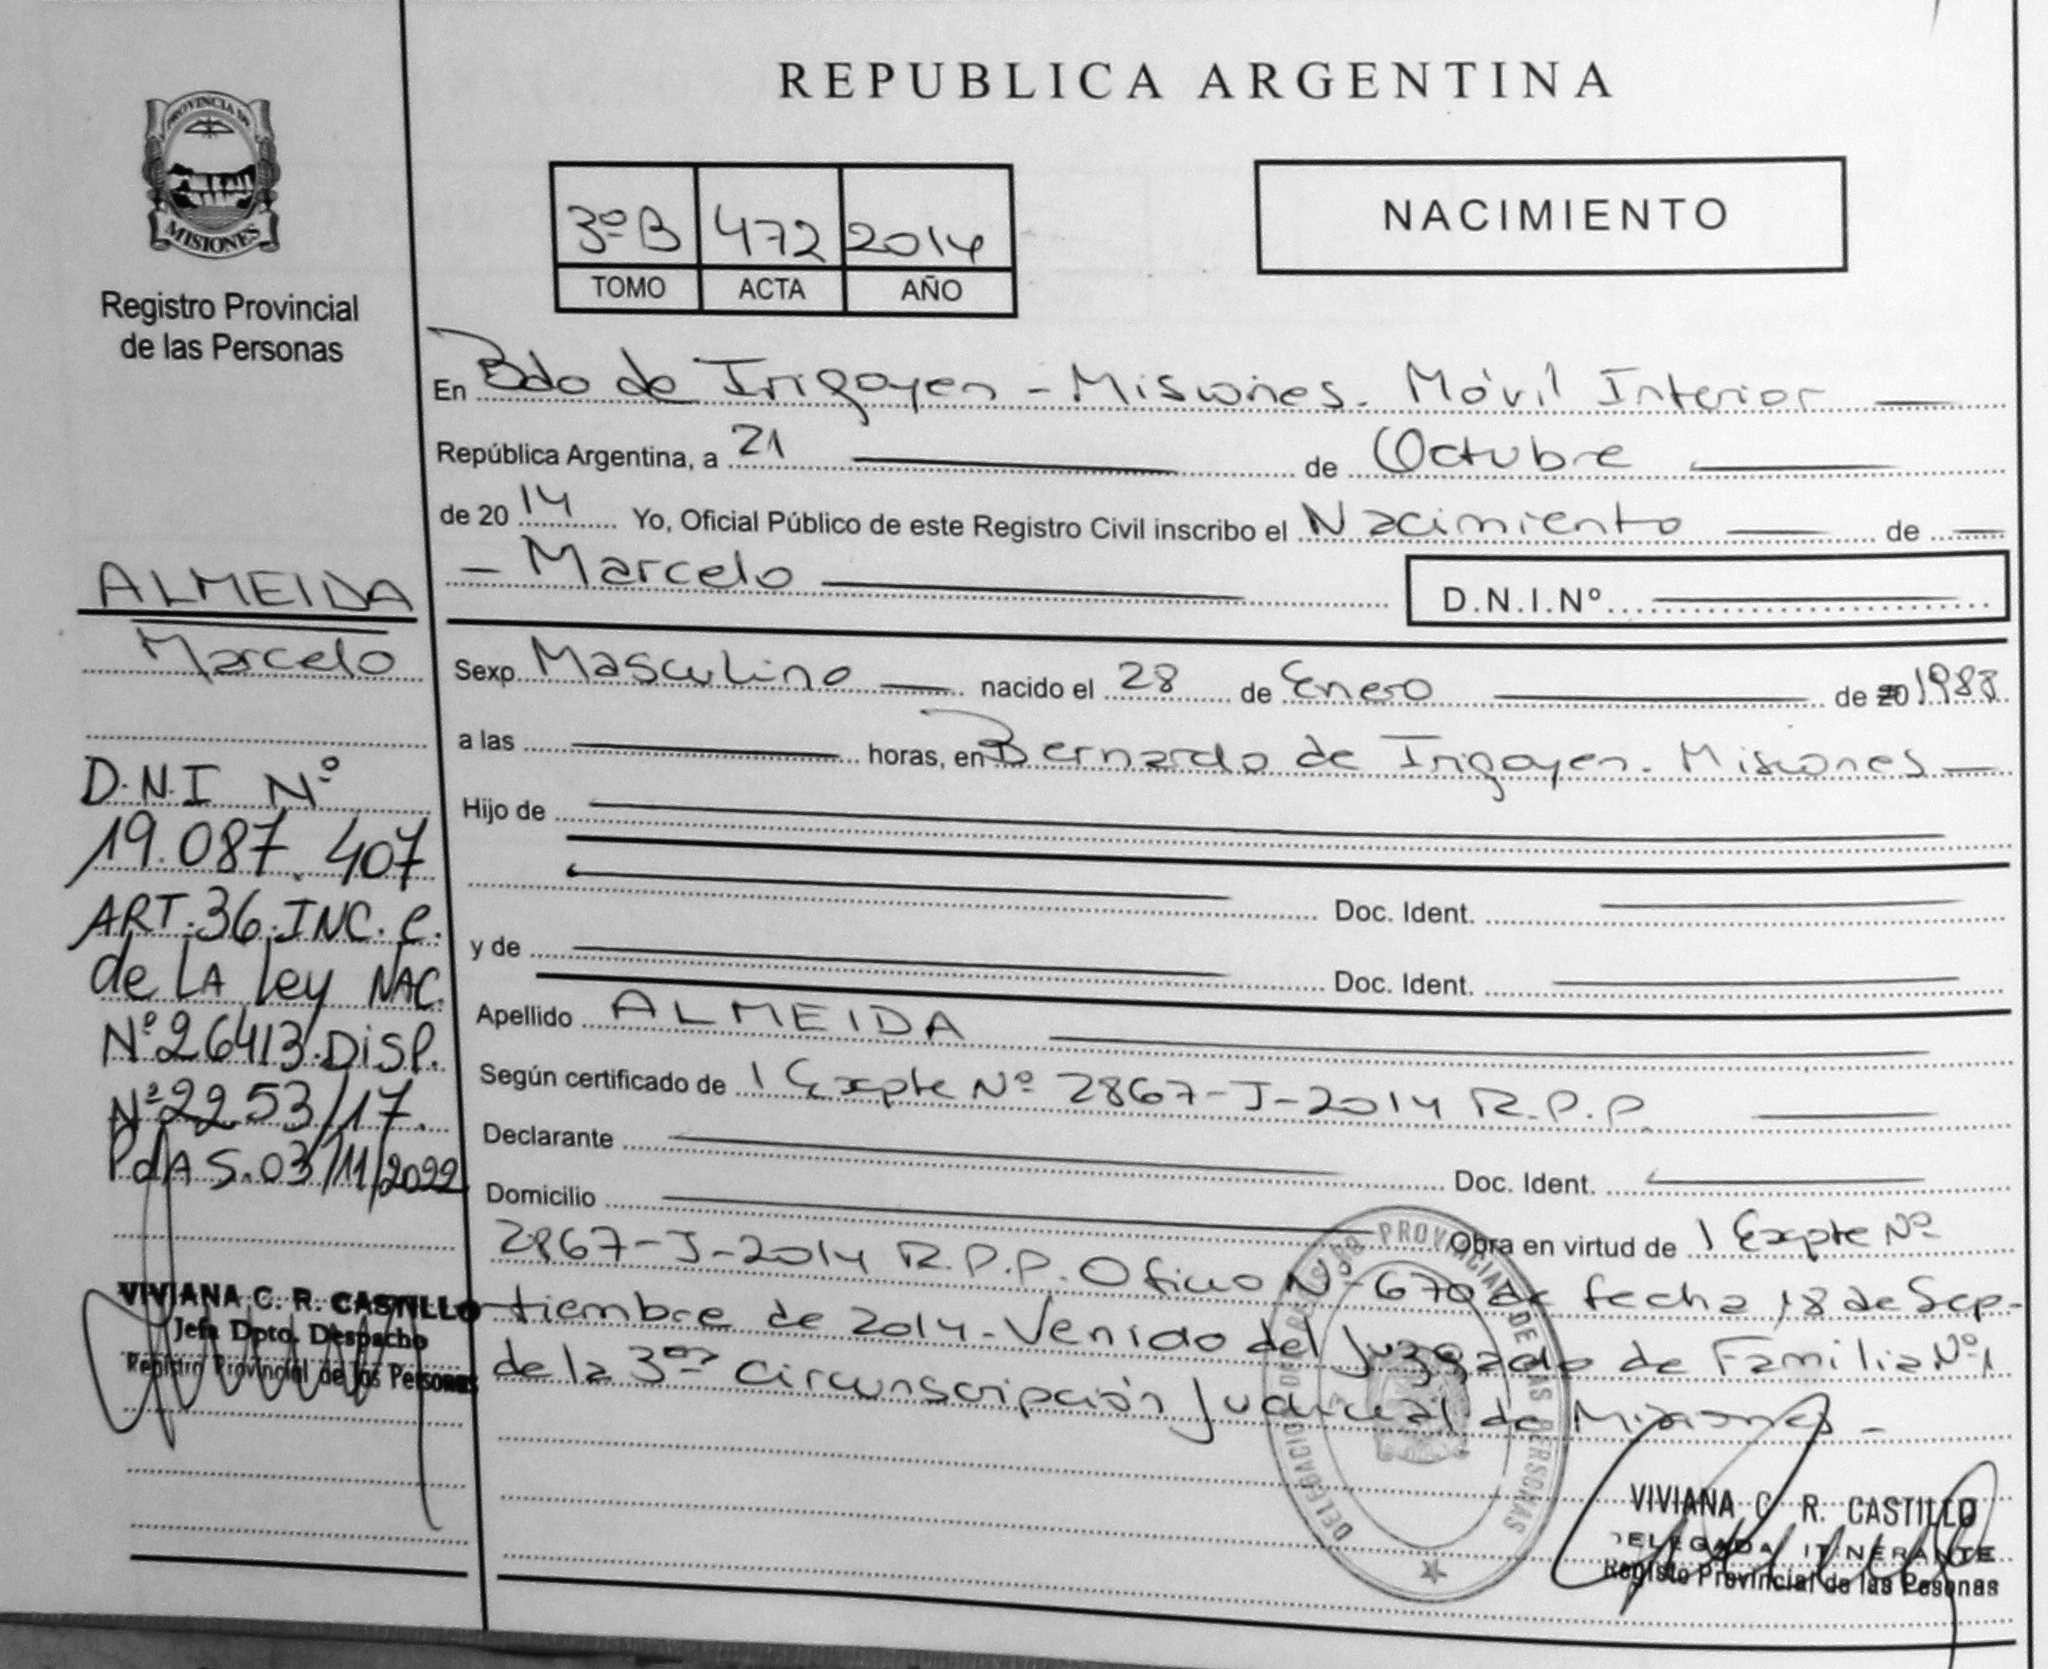 PROVINCIA DE
MISIONES
Registro Provincial
de las Personas
ALMEIDA
Marcelo
D.N.I Nº
19.087.407
ART. 36. INC. e.
de LA Ley NAC.
Nº 26413. DISP.
Nº 2253/17.
PdAS. 03/11/2022
VIVIANA C. R. CASTILLO
Jefa Dpto. Despacho
Registro Provincial de las Personas
REPUBLICA ARGENTINA
3º B 472 2014
TOMO ACTA AÑO
NACIMIENTO
En Bdo de Irigoyen - Misiones. Móvil Interior
República Argentina, a 21 de Octubre
de 20 14 Yo, Oficial Público de este Registro Civil inscribo el Nacimiento de
Marcelo D.N.I.Nº
Sexo Masculino nacido el 28 de Enero de 20 1983
a las horas, en Bernardo de Irigoyen. Misiones
Hijo de
Doc. Ident.
y de Doc. Ident.
Apellido ALMEIDA
Según certificado de 1 Expte Nº 2867-J-2014 R.P.P.
Declarante Doc. Ident.
Domicilio
Obra en virtud de 1 Expte Nº
2867-J-2014 R.P.P. Oficio Nº 670 de fecha 18 de Sep-
tiembre de 2014. Venido del Juzgado de Familia Nº 1
de la 3era Circunscripción Judicial de Misiones -
DELEGACION REGISTRO PROVINCIAL DE LAS PERSONAS
VIVIANA C R. CASTILLO
DELEGADA ITINERANTE
Registo Provincial de las Pesonas